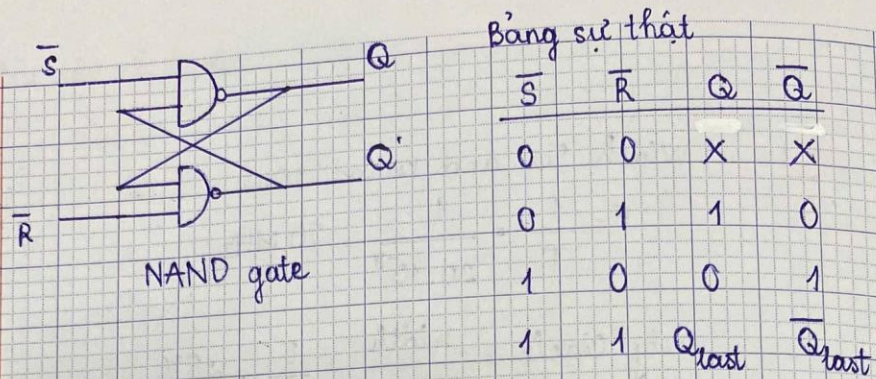 S̅
Q
Q'
R̅
NAND gate
Bảng sự thật
S̅ R̅ Q Q̅
0 0 X X
0 1 1 0
1 0 0 1
1 1 Qlast Q̅last